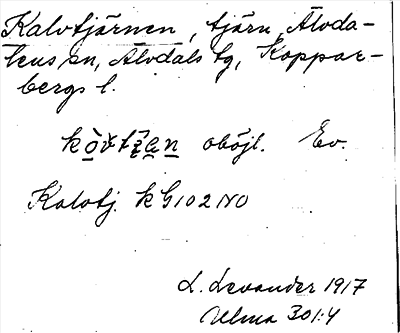 Kalvtjärnen, tjärn, Älvda-
lens sn, Älvdals tg, Koppar-
bergs l.
oböjl. Ev.
Kalvtj. k G102 NO
L. Levander 1917
Ulma 301:4